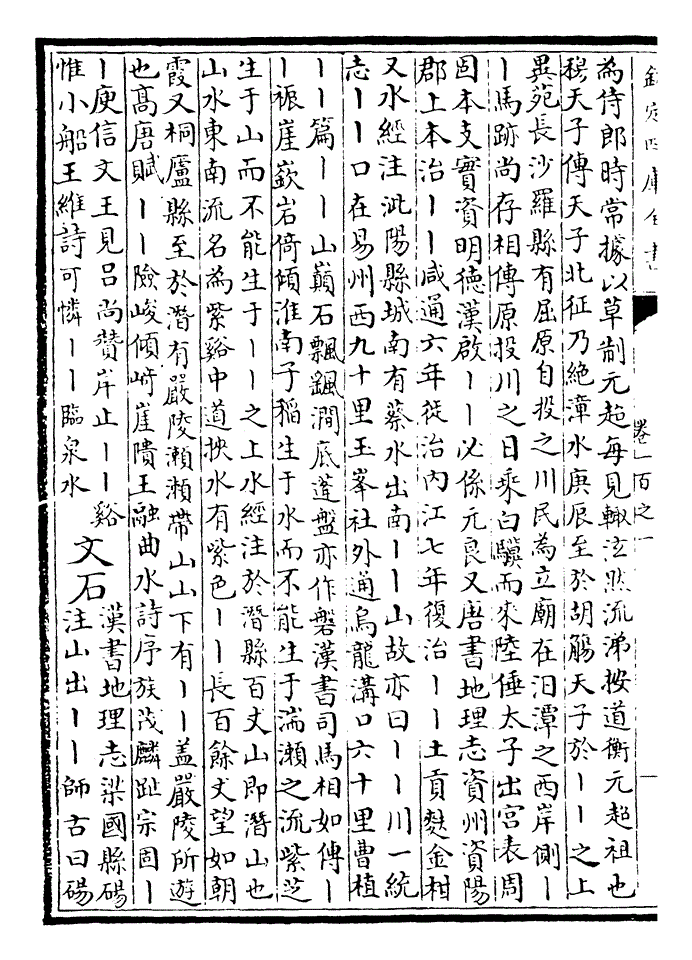 欽定四庫全書
卷一百之一
為侍郎時常據以草制元超每見輙泫然流涕按道衡元超祖也
穆天子傳天子北征乃絶漳水庚辰至於胡觴天子於丨丨之上
異苑長沙羅縣有屈原自投之川民為立廟在汨潭之西岸側丨
丨馬跡尚存相傳原投川之日乘白驥而來陸倕太子出宫表周
固本支實資明德漢啟丨丨必係元良又唐書地理志資州資陽
郡上本治丨丨咸通六年徙治内江七年復治丨丨土貢麩金柑
又水經注沘陽縣城南有蔡水出南丨丨山故亦曰丨丨川一統
志丨丨口在易州西九十里玉峯社外通烏龍溝口六十里曹植
丨丨篇丨丨山巔石飄飄澗底蓬盤亦作磐漢書司馬相如傳丨
丨裖崖嶔岩倚傾淮南子稻生于水而不能生于湍瀨之流紫芝
生于山而不能生于丨丨之上水經注於潛縣百丈山即潛山也
山水東南流名為紫谿中道挾水有紫色丨丨長百餘丈望如朝
霞又桐廬縣至於潛有嚴陵瀨瀨帶山山下有丨丨盖嚴陵所遊
也髙唐賦丨丨險峻傾﨑崖隤王融曲水詩序族茂麟趾宗固丨
丨庾信文王見吕尚贊岸止丨丨谿
惟小船王維詩可憐丨丨臨泉水
文石
漢書地理志梁國縣碭
注山出丨丨師古曰碭